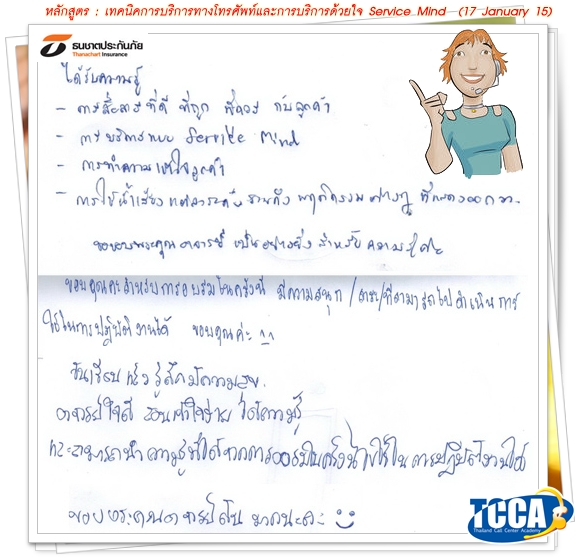 หลักสูตร : เทคนิคการบริการทางโทรศัพท์และการบริการด้วยใจ Service Mind (17 January 15)
ธนชาตประกันภัย
Thanachart Insurance
ได้รับความรู้
- การสื่อสารที่ดี ที่ถูก ที่ควร กับลูกค้า
- การบริการแบบ Service Mind
- การทำความเข้าใจลูกค้า
- การใช้น้ำเสียง แต่ละระดับ รวมถึง พฤติกรรมต่างๆ ที่แสดงออกมา
ขอขอบพระคุณ อาจารย์ เป็นอย่างยิ่ง สำหรับ ความรู้ค่ะ
ขอบคุณค่ะสำหรับการอบรมในครั้งนี้ มีความสนุก / สาระ/ที่สามารถไปดำเนินการ
ใช้ในการปฏิบัติงานได้ ขอบคุณค่ะ ^^
ขึ้นเรียนแล้วรู้สึกมีความสุข.
อาจารย์ใจดี สอนเข้าใจง่าย ได้ความรู้
และสามารถนำความรู้ที่ได้จากการอบรมในครั้งนี้ไปใช้ในการปฏิบัติงานได้
ขอบพระคุณอาจารย์ มากนะคะ
TCCA
Thailand Call Center Academy